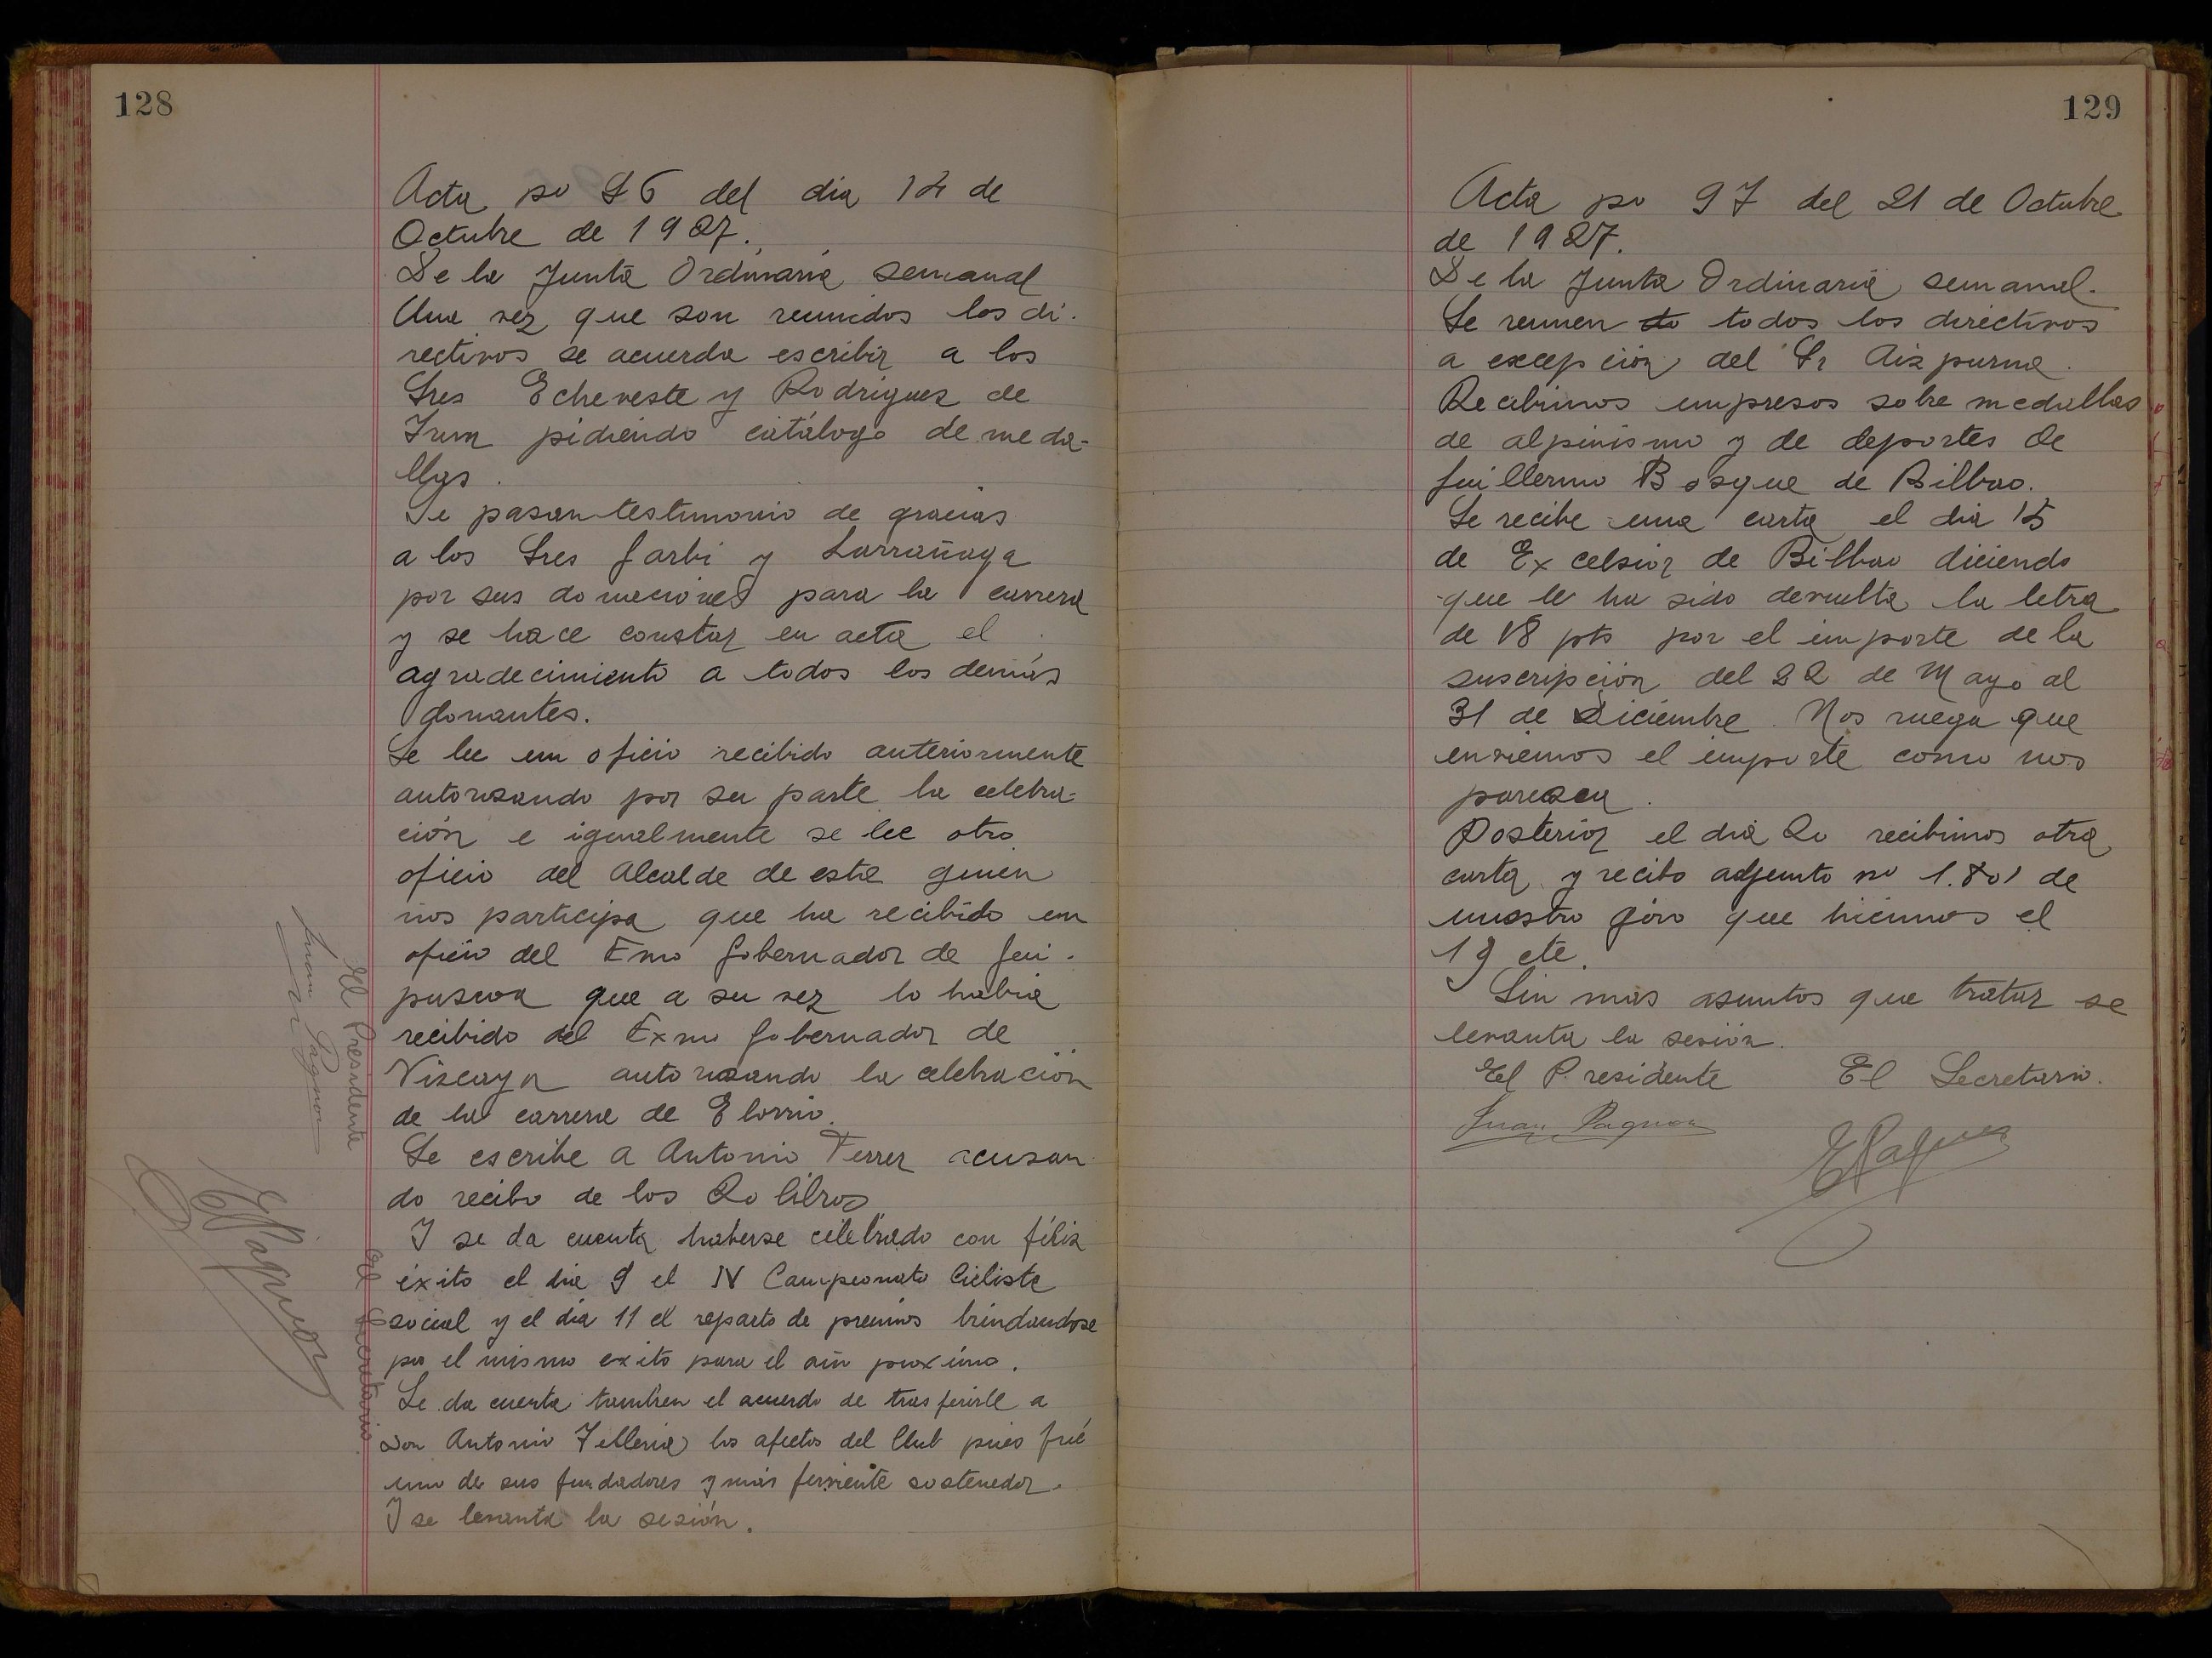 128
Acta no 96 del dia 14 de
Octubre de 1927.
De la Junta Ordinaria semanal
Una vez que son reunidos los di-
rectivos se acuerda escribir a los
Sres Echeveste y Rodriguez de
Irun pidiendo catálogo de meda-
llas.
Se pasan testimonio de gracias
a los Sres Garbi y Larrañaga
por sus donaciones para la carrera
y se hace constar en acta el
agradecimiento a todos los demás
donantes.
Se lee un oficio recibido anteriormente
autorizando por su parte la celebra-
ción e igualmente se lee otro
oficio del Alcalde de esta quien
nos participa que ha recibido un
oficio del Exmo Gobernador de Gui-
puscoa que a su vez lo habia
recibido del Exmo Gobernador de
Viscaya autorizando la celebración
de la carrera de Elorrio.
Se escribe a Antonio Ferrer acusan-
do recibo de los 20 libros
Y se da cuenta haberse celebrado con féliz
éxito el dia 9 el IV Campeonato Ciclista
social y el dia 11 el reparto de premios brindandose
por el mismo exito para el año proximo.
Se da cuenta tambien el acuerdo de trasferirle a
Don Antonio Telleria los afectos del Club pues fué
uno de sus fundadores y más ferviente sostenedor.
Y se levanta la sesión.
El Presidente
Juan Pagnon
El Secretario
EPagnon
129
Acta no 97 del 21 de Octubre
de 1927.
De la Junta Ordinaria semanal.
Se reunen to todos los directivos
a excepción del Sr Aizpurua.
Recibimos impresos sobre medallas
de alpinismo y de deportes de
Guillermo Bosque de Bilbao.
Se recibe una carta el dia 15
de Excelsior de Bilbao diciendo
que le ha sido devuelta la letra
de 18 pts por el importe de la
suscripción del 22 de Mayo al
31 de Diciembre. Nos ruega que
enviemos el importe como nos
paresca.
Posterior el dia 20 recibimos otra
carta y recibo adjunto no 1.801 de
nuestro giro que hicimos el
19 cte.
Sin mas asuntos que tratar se
levanta la sesión.
El Presidente El Secretario.
Juan Pagnon
EPagnon